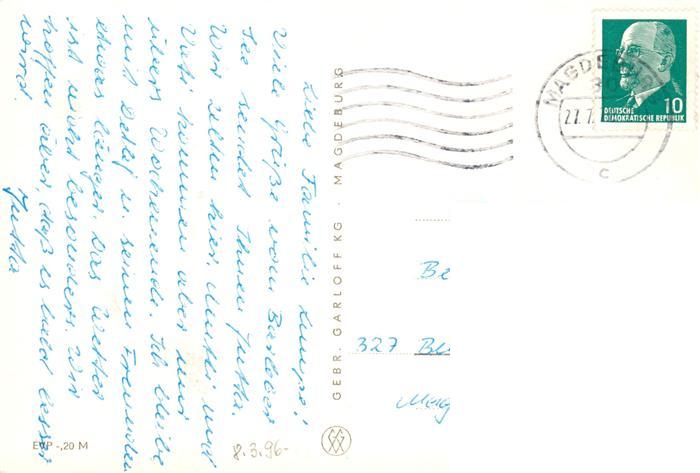 Liebe Familie
Viele Grüße vom Barleber
See sendet Ihnen Jutta.
Wir zelten hier, Mutti und
Vati kommen aber nur
übers Wochenende. Ich bleibe
mit Detlef u. seinen Freunden
etwas länger. Das Wetter
ist nicht besonders. Wir
hoffen aber, daß es bald besser
wird.
Jutta
EVP -,20 M
8.3.96-
GEBR. GARLOFF KG · MAGDEBURG
MAGDEBURG
27.7
c
10
DEUTSCHE
DEMOKRATISCHE REPUBLIK
Be
327 Bu
Mag